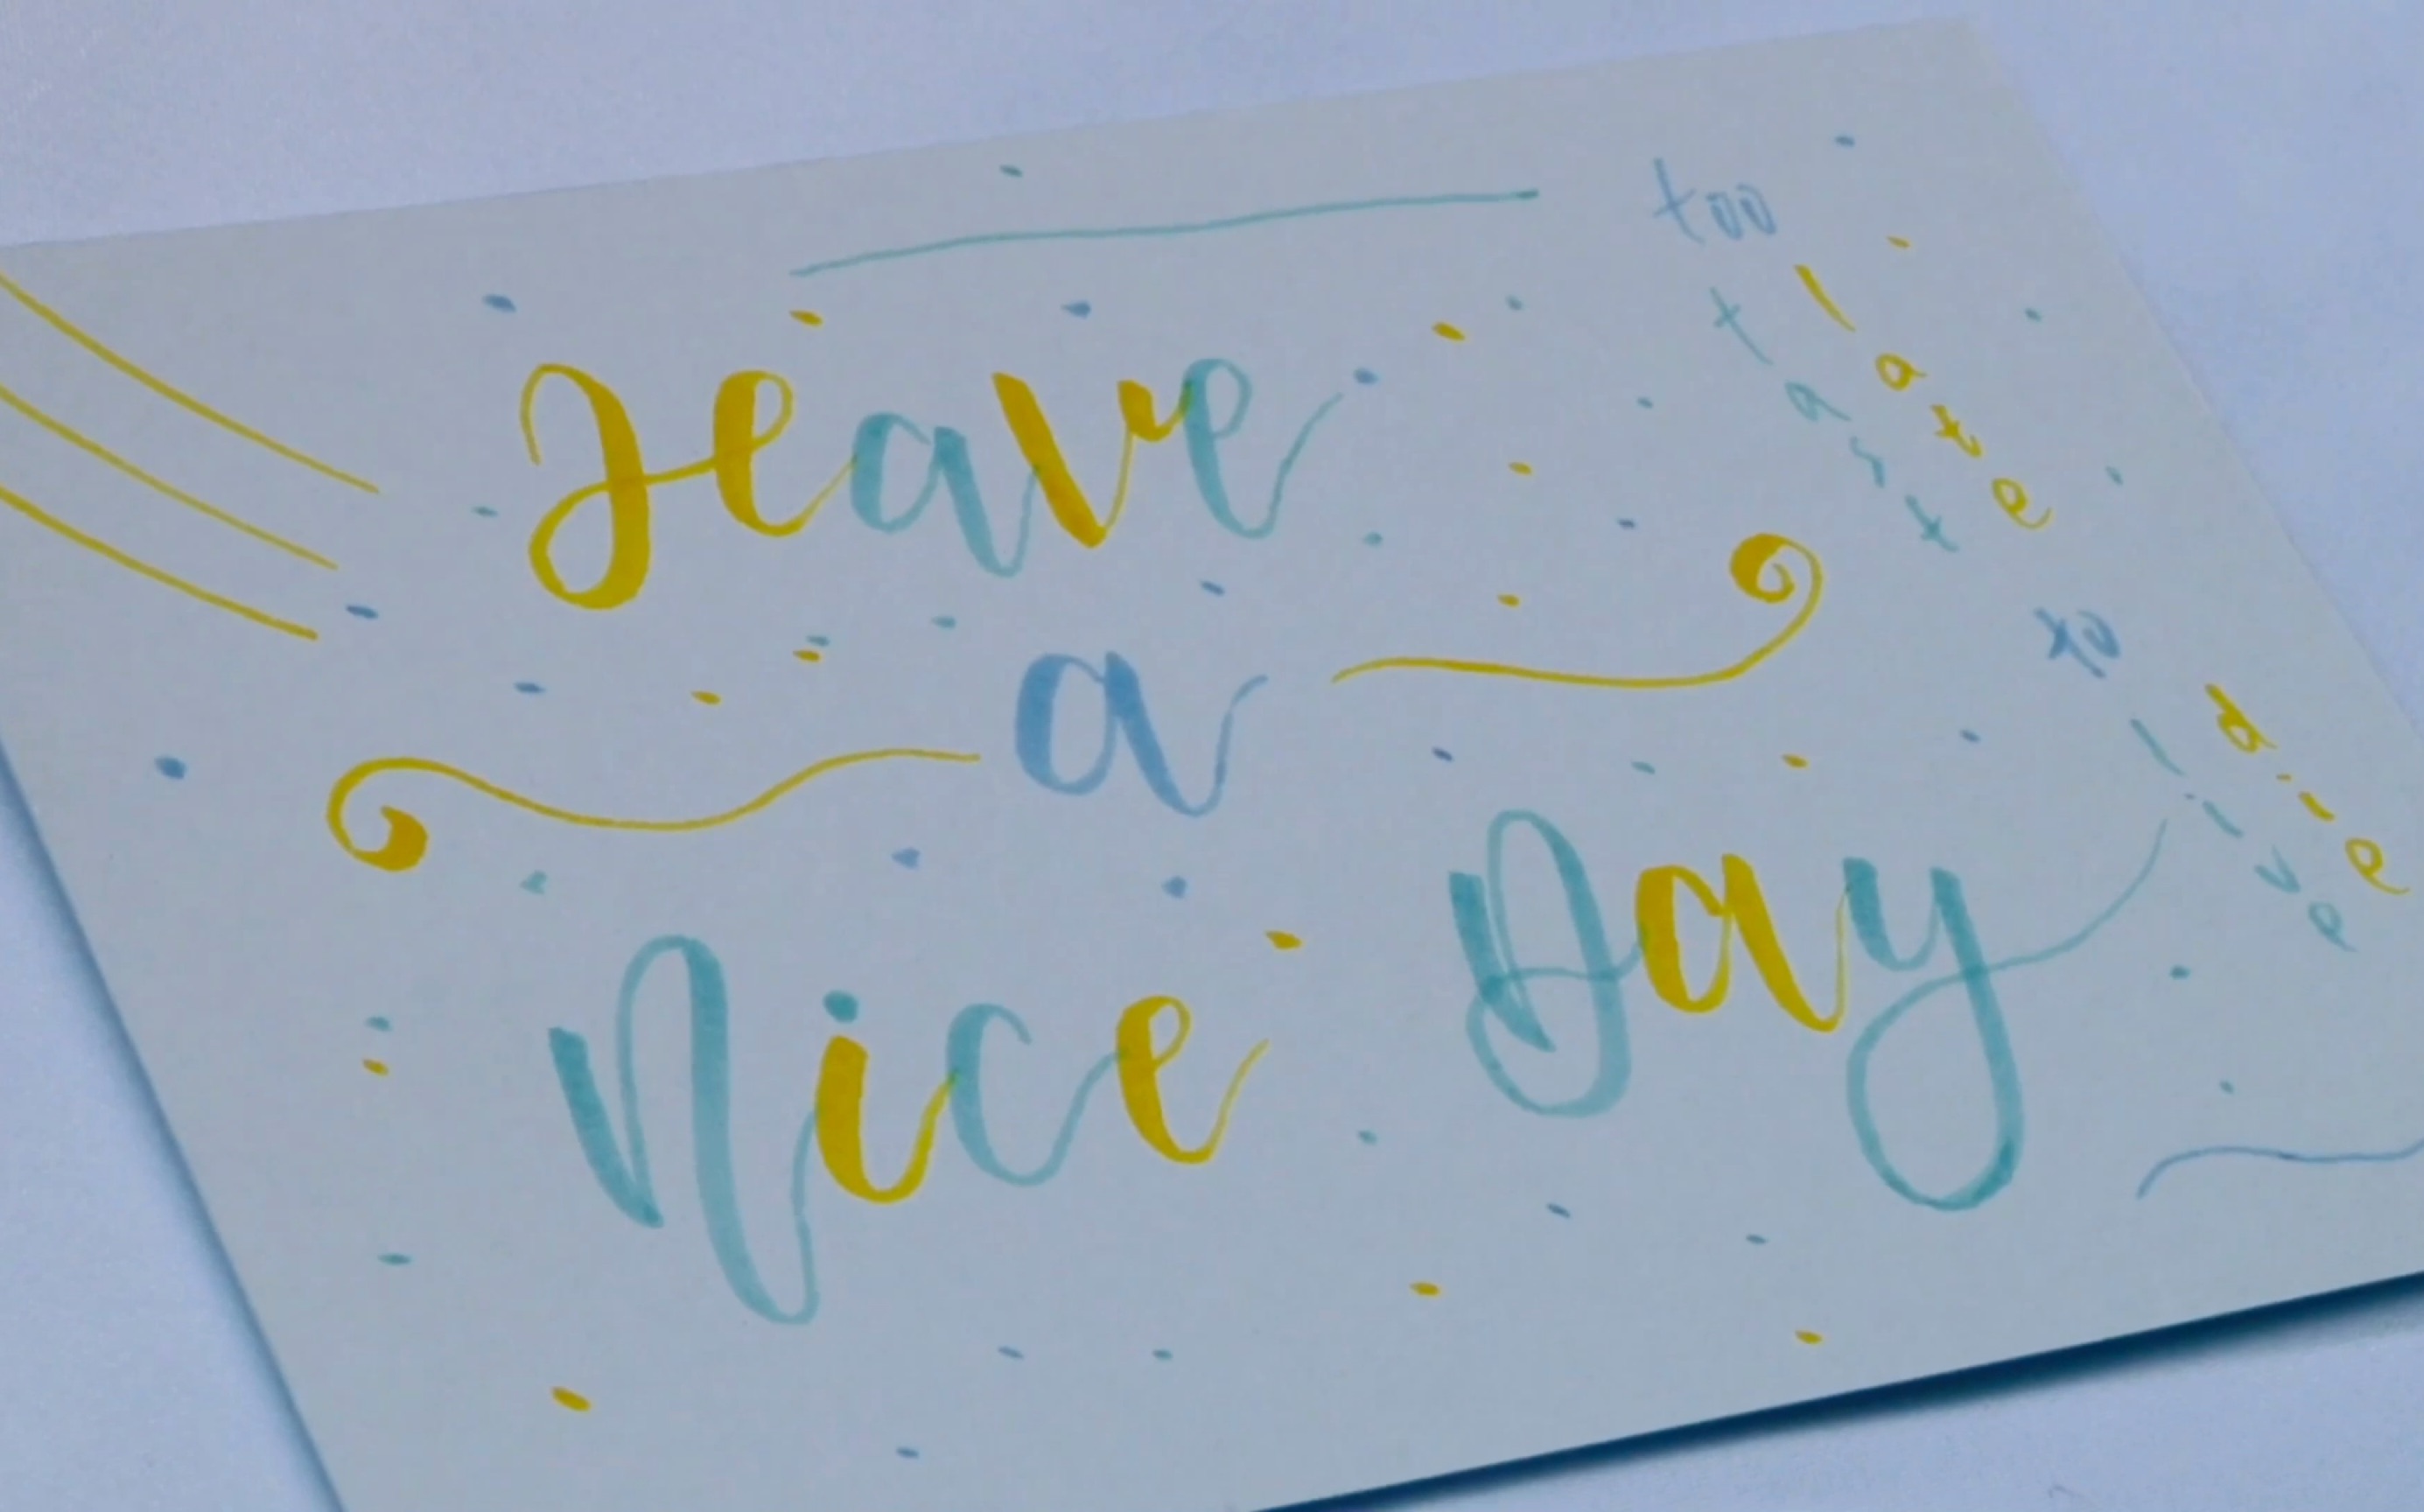 Have
a
Nice Day
too
late
tart
to
die
live